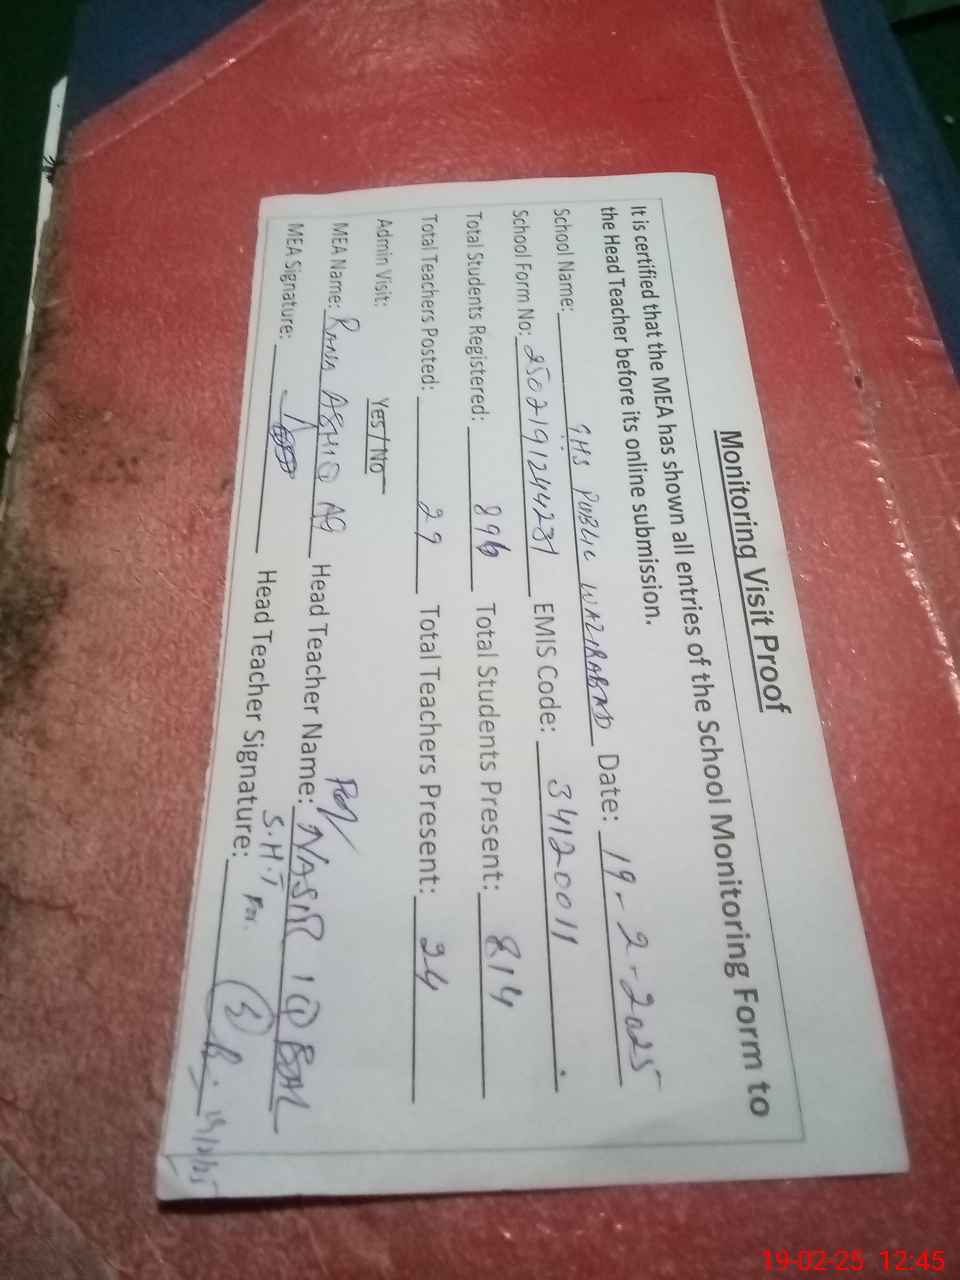 Monitoring Visit Proof
It is certified that the MEA has shown all entries of the School Monitoring Form to
the Head Teacher before its online submission.
School Name: GHS PUBLIC WAZIRABAD Date: 19-2-2025
School Form No: 2502191244231 EMIS Code: 34120011
Total Students Registered: 896 Total Students Present: 814
Total Teachers Posted: 29 Total Teachers Present: 24
Admin Visit: Yes/No
MEA Name: Rana ASHIQ Ali Head Teacher Name: NASIR IQBAL
S.H.T For.
MEA Signature: Head Teacher Signature:
19/2/25
19-02-25 12:45